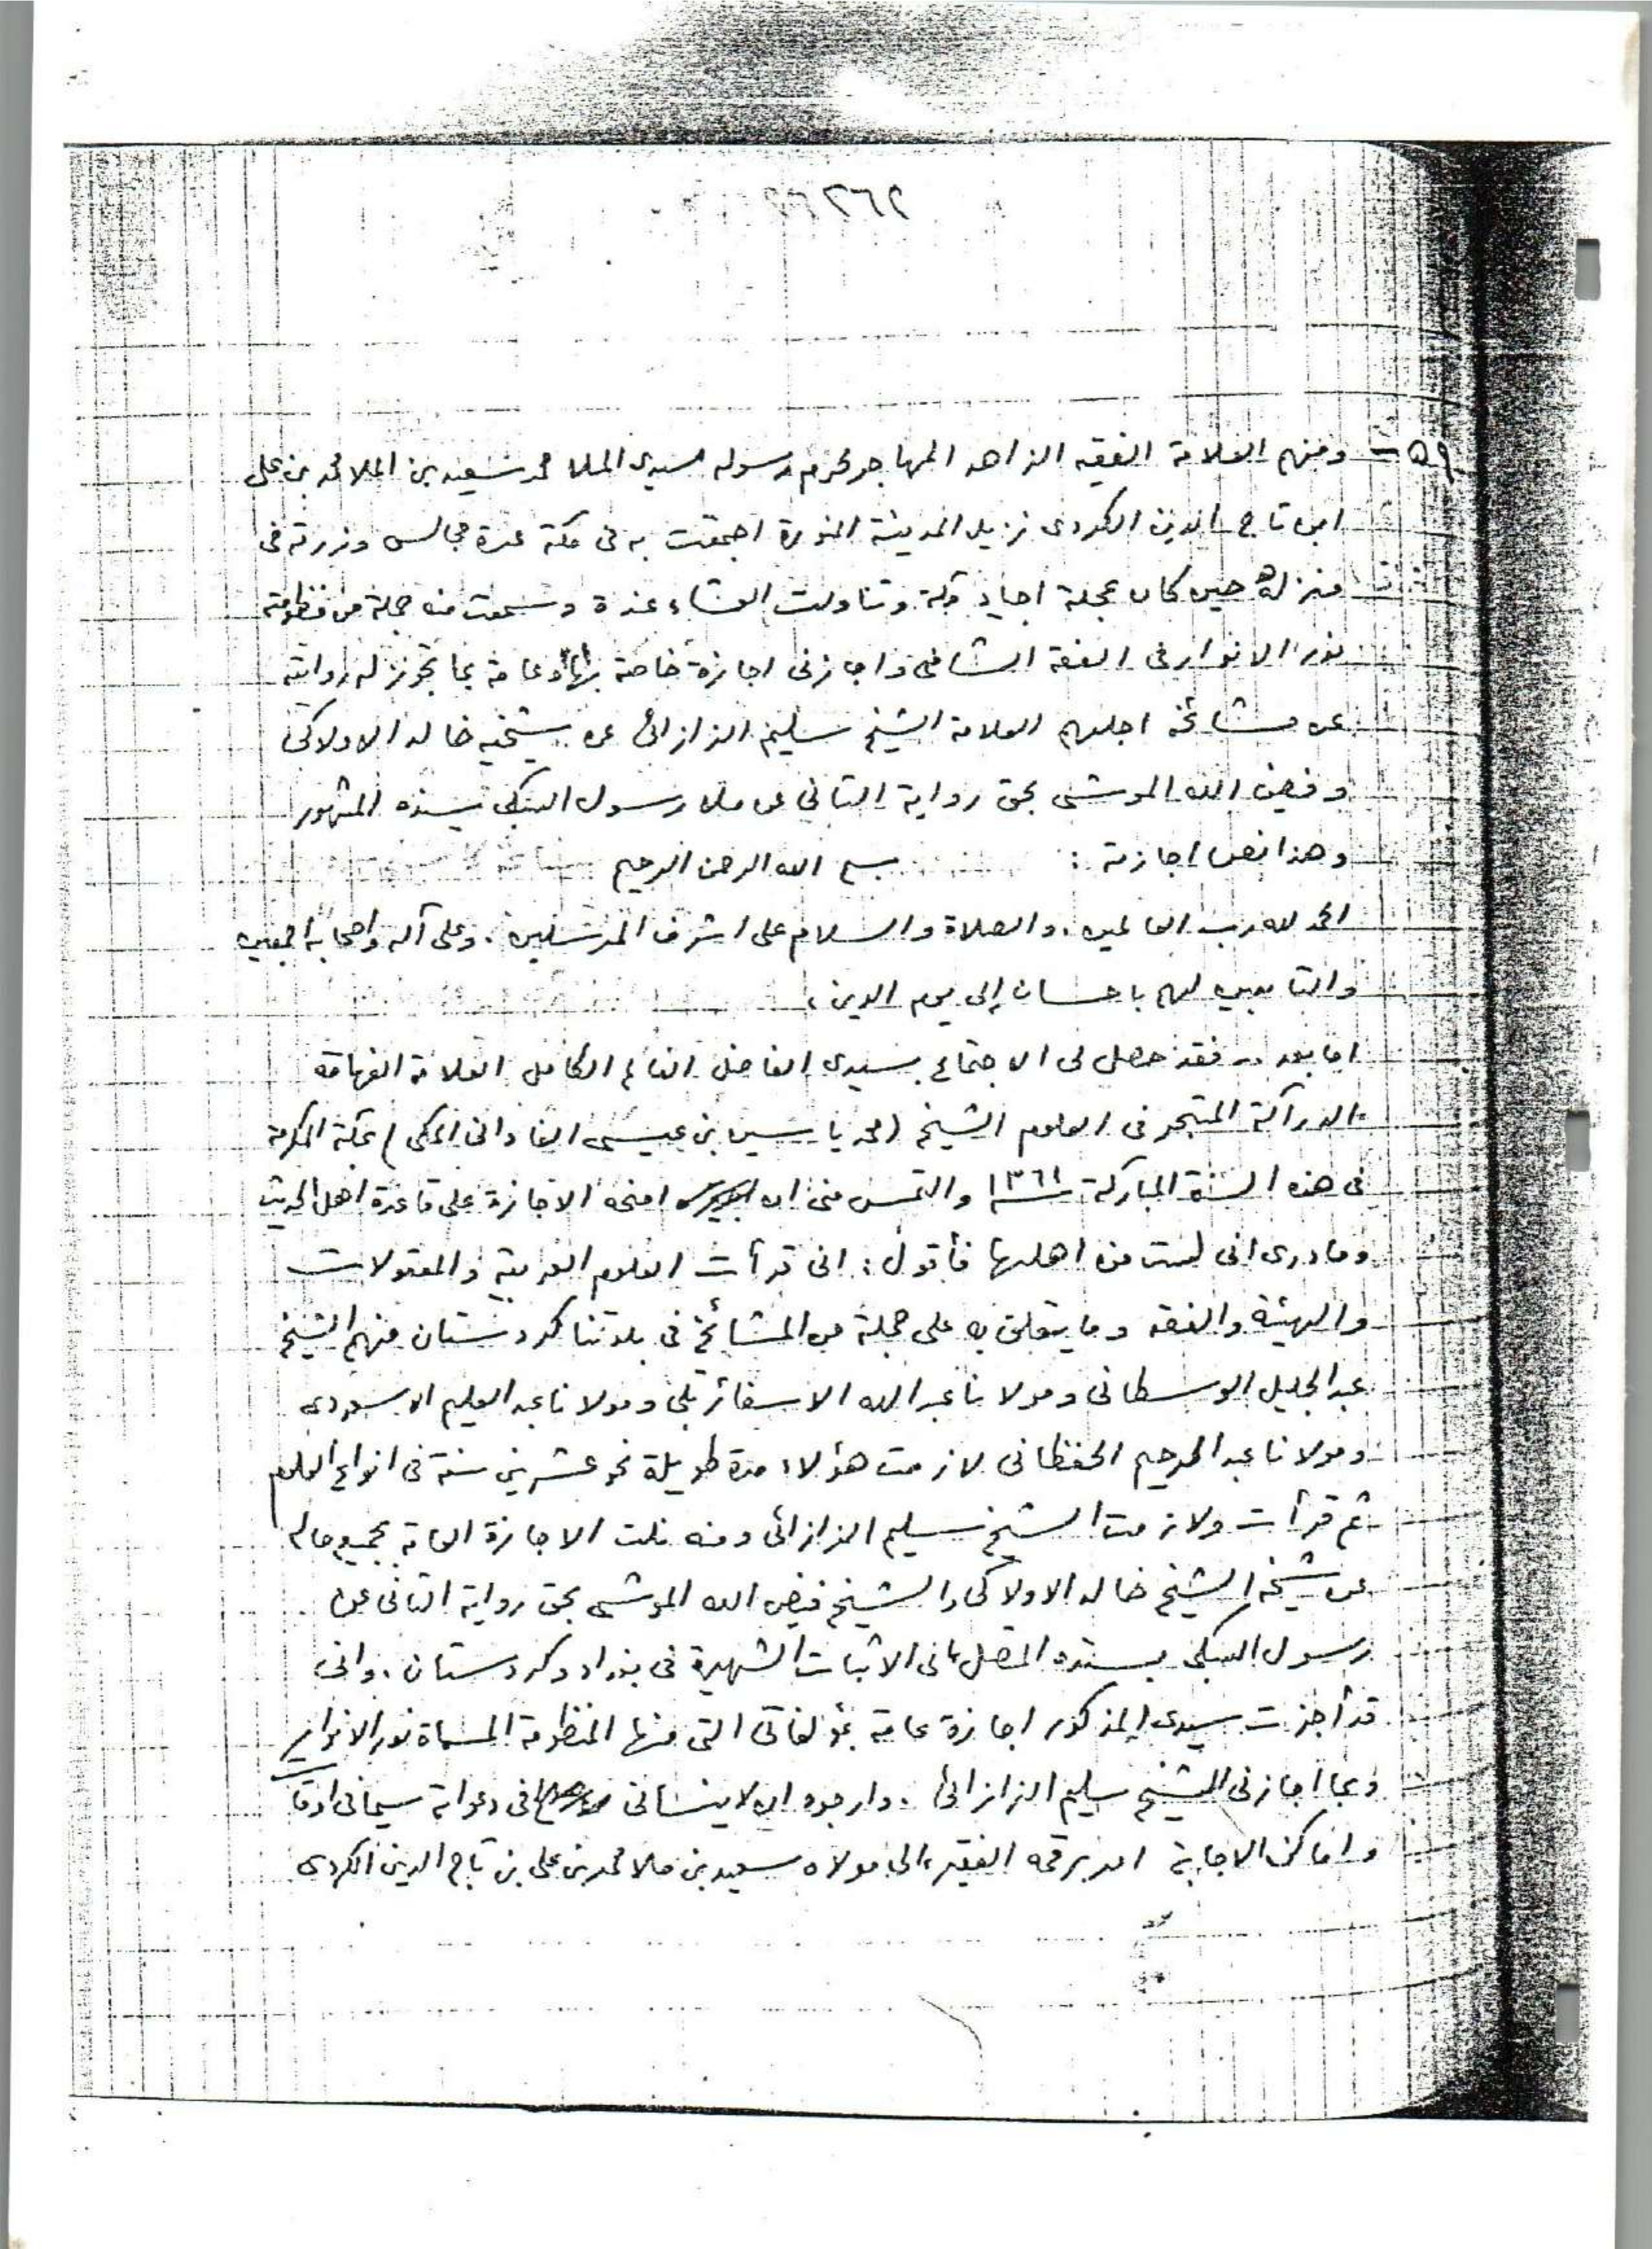 ٢٦٢
٥٩ - ومنهم العلامة الفقيه الزاهد المهاجر لحرم رسوله سيدى الملا محمد سعيد بن الملا محمد بن على
ابن تاج الدين الكردى نزيل المدينة المنورة اجتمعت به فى مكة عدة مجالس وزرته فى
منزله حين كان بمحلة اجياد بمكة وتناولت العشاء عنده وسمعت منه جملة من منظومته
نور الانوار فى الفقه الشافعى واجازنى اجازة خاصة بها وعامة بما تجوز له روايته
عن مشائخه اجلهم العلامة الشيخ سليم الزازائى عن شيخيه خالد الاولاكى
وفيض الله الموشى بحق رواية الثانى عن ملا رسول السبكى بسنده المشهور
وهذا نص اجازته : بسم الله الرحمن الرحيم
الحمد لله رب العالمين . والصلاة والسلام على اشرف المرسلين . وعلى آله واصحابه اجمعين
والتابعين لهم باحسان إلى يوم الدين ،
اما بعد .. فقد حصل لى الاجتماع بسيدى الفاضل العالم الكامل العلامة الفهامة
الدرآكة المتبحر فى العلوم الشيخ ( محمد ياسين بن عيسى الفادانى المكى ) بمكة المكرمة
فى هذه السنة المباركة ١٣٦١ والتمس منى ان امنحه الاجازة على قاعدة اهل الحديث
وما درى انى لست من اهلها فأقول : انى قرأت العلوم العربية والمعقولات
والهيئة والفقه وما يتعلق به على جملة من المشائخ فى بلدتنا كردستان منهم الشيخ
عبد الجليل الوسطانى ومولانا عبد الله الاسفائرتلى ومولانا عبد العليم الاسعردى
ومولانا عبد الرحيم الحفظانى لازمت هؤلاء مدة طويلة نحو عشرين سنة فى انواع العلوم
ثم قرأت ولازمت الشيخ سليم الزازائى ومنه نلت الاجازة العامة بجميع ماله
عن شيخه الشيخ خالد الاولاكى والشيخ فيض الله الموشى بحق رواية الثانى عن
رسول السبكى بسنده المتصل بما فى الاثبات الشهيرة فى بغداد وكردستان . وانى
قد أجزت سيدى المذكور اجازة عامة بمؤلفاتى التى منها المنظومة المسماة نور الانوار
وبما اجازنى الشيخ سليم الزازائى . وارجوه ان لا ينسانى فى دعواته سيما فى اوقات
واماكن الاجابة امر برقمه الفقير الى مولاه سعيد بن ملا محمد بن على بن تاج الدين الكردى